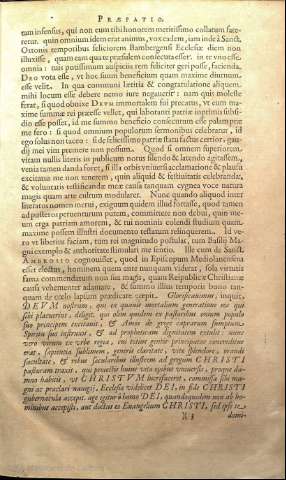 PRÆFATIO.
tum infensus, qui non cum tibi honorem meritissimo collatum fate-
retur. quin omnium idem erat animus, vox eadem, iam inde à Sancti
Ottonis temporibus feliciorem Bambergensi Ecclesiæ diem non
illuxisse, quam eam qua te præsulem consecuta esset. in te vno esse
omnia: tuis potissimum auspiciis rem feliciter geri posse, facienda,
DEO vota esse, vt hoc suum beneficium quam maxime diuturnum
esse velit. In qua communi lætitia & congratulatione aliquem
mihi locum esse debere nemo iure negauerit: nam quis moleste
ferat, si quod obnixe DEUM immortalem fui precatus, vt eum max-
ime summæ rei præesse vellet, qui labitanti patriæ inprimis subsi-
dio esse posset, id me summo beneficio consecutum esse palamque
me fero: si quod omnium populorum sermonibus celebratur, id
ego solus non taceo: si de felicissimo patriæ statu factus certior, gau-
dij mei vim premere non possum. Quod si omnem superiorem,
vitam nullis literis in publicum notis silendo & latendo agitassem,
venia tamen danda foret, si illa orbis vniuersi acclamatione & plausu
excitatus me non tenerem, quin aliquid & festiuitatis celebrandæ,
& voluntatis testificandæ meæ causa tanquam cygnea voce natura
magis quam arte cultum modularer. Nunc quando aliquod inter
literatos nomen meus, exiguum quidem illud fortasse, quod tamen
ad posteros peruenturum putem, committere non debui, quin me-
um erga patriam amorem, & tui nominis colendi studium quem
maxime possem illustri documento testatum relinquerem. Id ve-
ro vt liberius faciam, tum rei magnitudo postulat, tum Basilij Ma-
gni exemplo & authoritate stimulari me sentio. Ille cum de Sancti
AMBROSIO cognouisset, quod is Episcopum Mediolanensem
esset electus, hominem quem ante nunquam viderat, sola virtutis
fama commendatum non sua magis, quam Reipublicæ Christianæ
causa vehementer adamauit, & summo illius temporis bono tan-
quam de cœlo lapsum prædicare cœpit. Glorificamus, inquit,
DEUM nostrum, qui in quauis mortalium generatione eos qui
sibi placuerint, deligit. qui olim quidem ex pastoribus ouium populo
suo principem excitauit, & Amos de grege caprarum sumptum
Spiritu suo instruxit, & ad prophetarum dignitatem extulit: nunc
vero virum ex vrbe regia, cui totius gentis principatus concreditus
erat, sapientia sublimem, generis claritate, vitæ splendore, dicendi
facultate, & rebus secularibus illustrem ad gregem CHRISTI
pascendum traxit. qui proiectis huius vitæ opibus vniuersis, proque
damno habitis, vt CHRISTUM lucrifaceret, commissa sibi ma-
gni ac præclari nauigij, Ecclesiæ videlicet DEI, in fide CHRISTI
gubernacula accepit. age igitur ô homo DEI, quandoquidem non ab ho-
minibus accepisti, aut doctus es Euangelium CHRISTI, sed ipse te
X 3 domi-